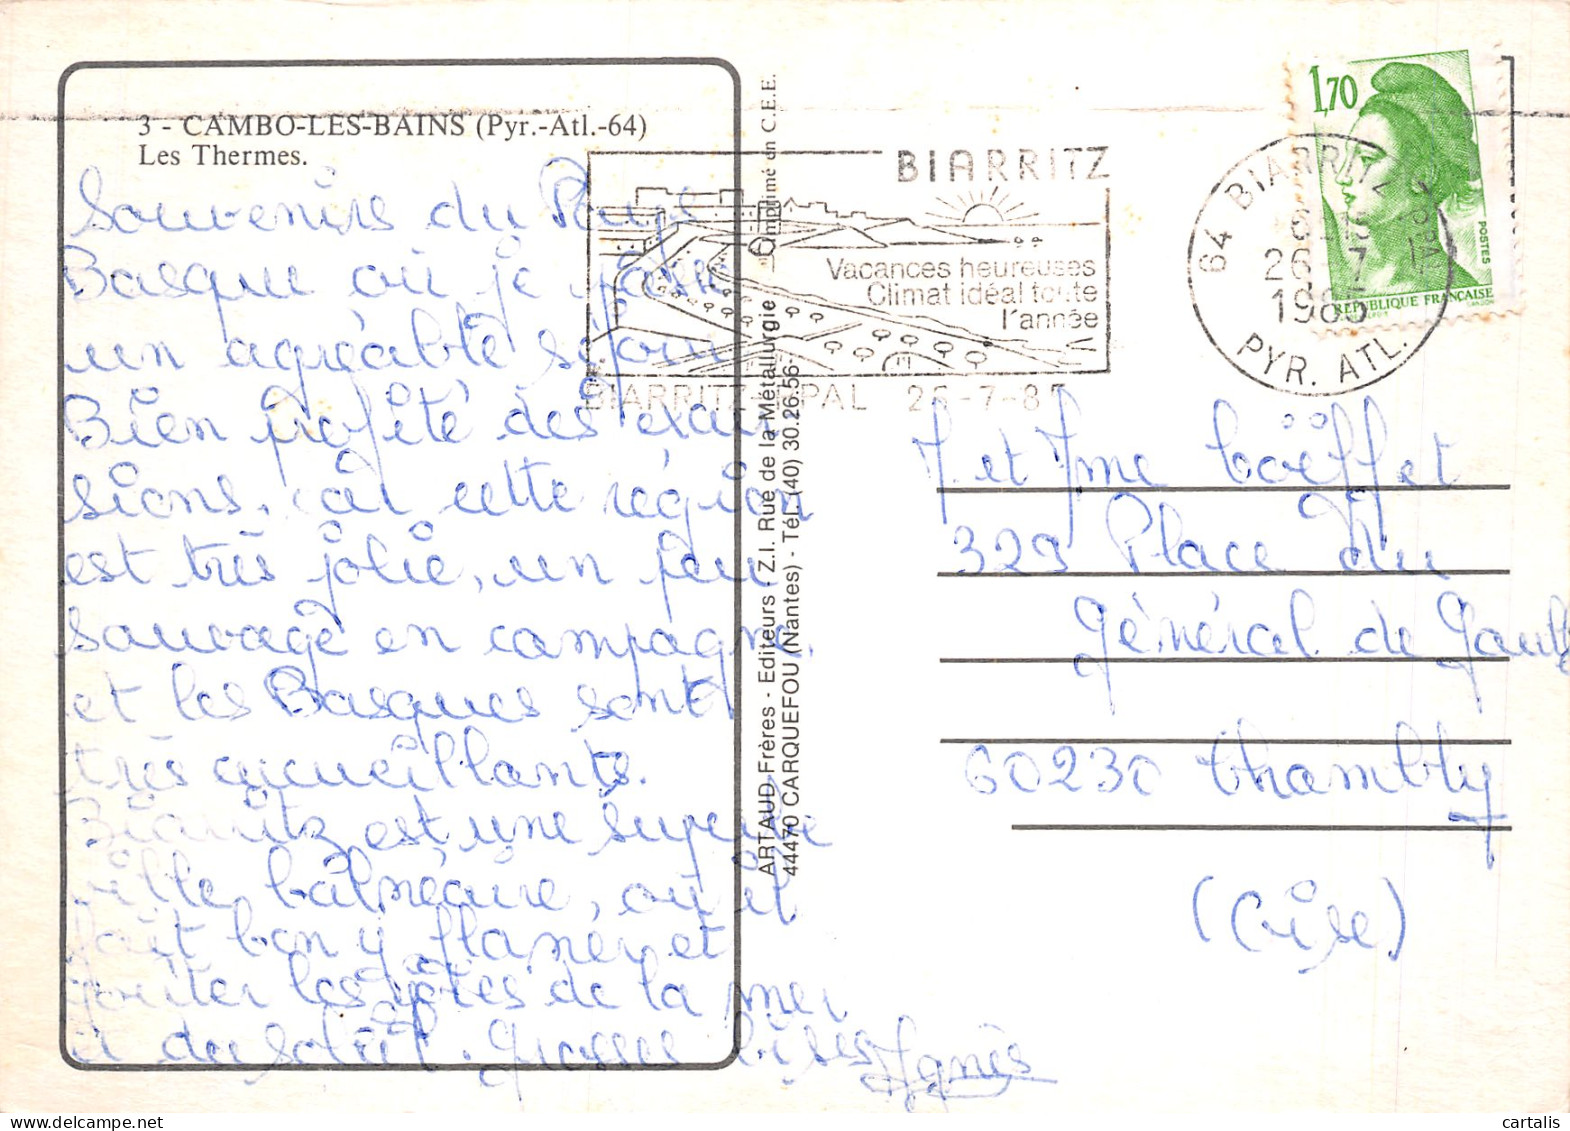 3 - CAMBO-LES-BAINS (Pyr.-Atl.-64)
Les Thermes.
Souvenirs du Pays
Basque où je passe
un agréable séjour
Bien profité des excur
sions, car cette région
est très jolie, un peu
sauvage en campagne
et les Basques sont
très accueillants.
Biarritz est une superbe
ville balnéaire, où il
fait bon y flâner et
goûter les joies de la mer
et du soleil. Grosses bises Agnès
ARTAUD Frères - Editeurs (Z.I. Rue de la Métallurgie Imprimé en C.E.E.
44470 CARQUEFOU (Nantes) - Tél. (40) 30.26.56
BIARRITZ
Vacances heureuses
Climat idéal toute
l'année
BIARRITZ PPAL 26-7-85
64 BIARRITZ PPAL
26-7
1985
PYR. ATL.
1,70
POSTES
REPUBLIQUE FRANÇAISE
M et Mme Coëffet
329 Place du
Général de Gaulle
60230 Chambly
(Oise)
cartalis
www.delcampe.net